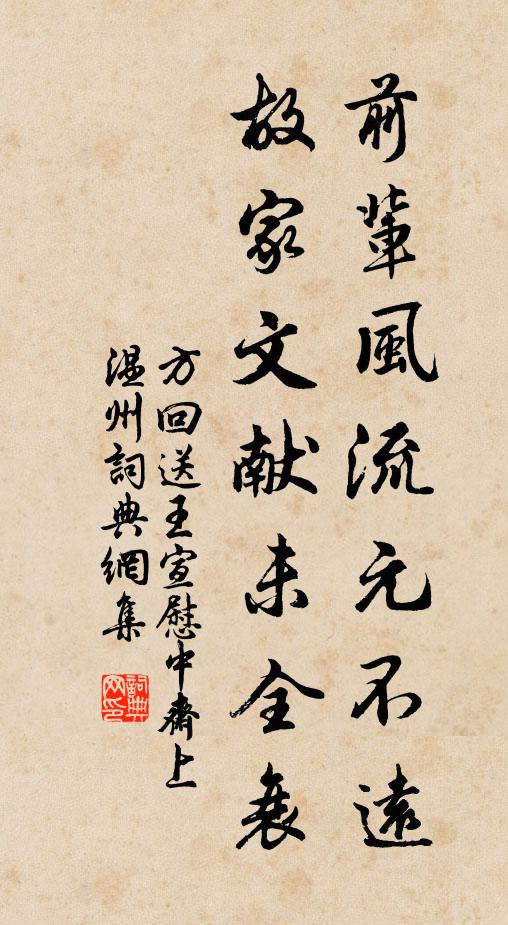 前輩風流元不遠
故家文献未全衰
方回送王宣慰中齋上
溫州詞典網集
詞典网印